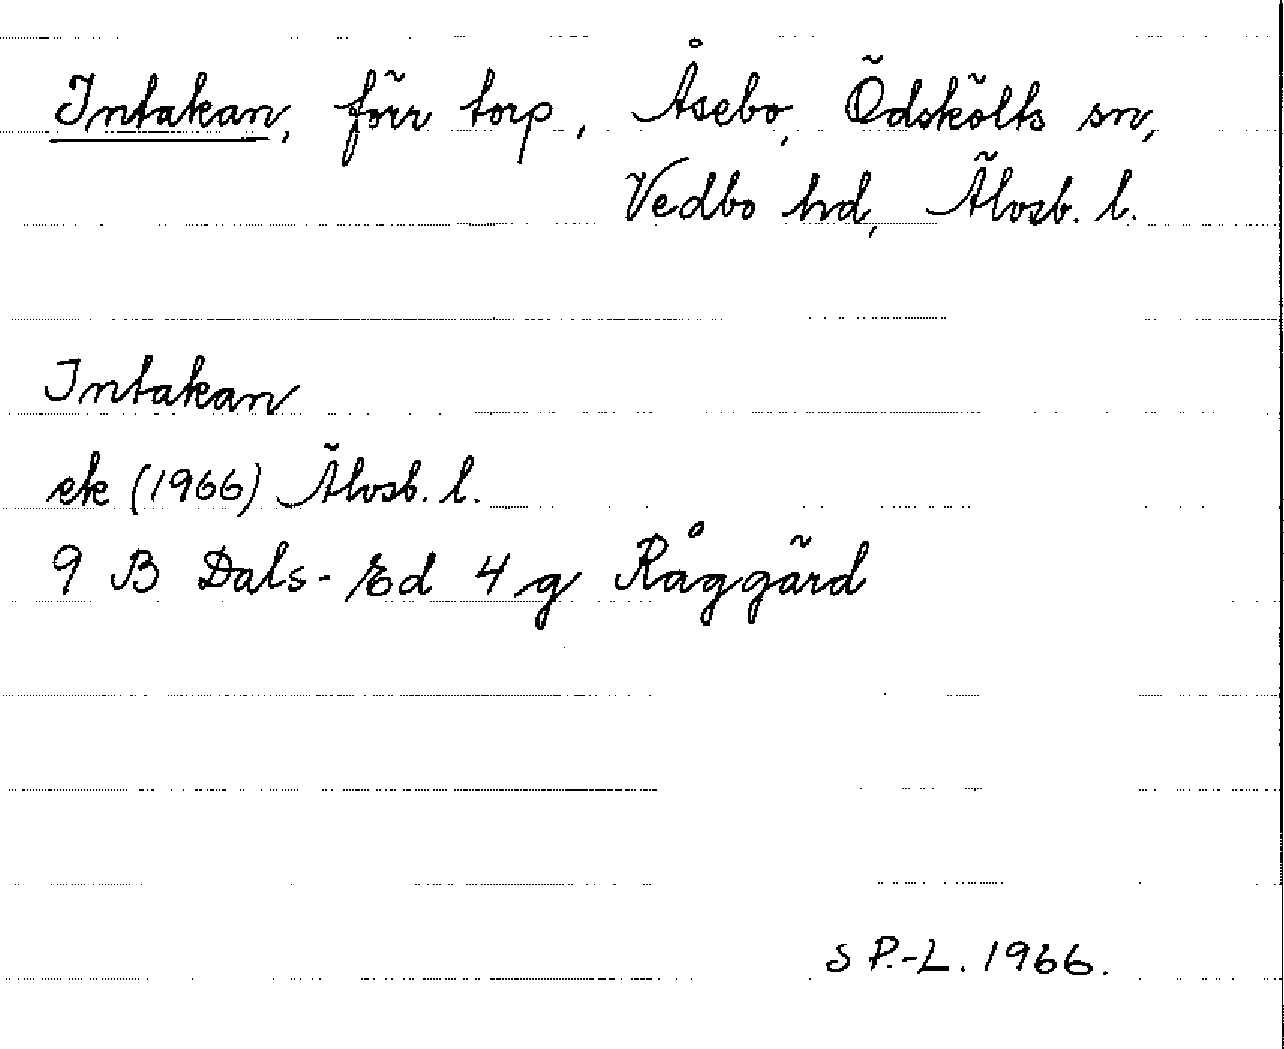 Intakan, förr torp, Åsebo, Ödskölts sn,
Vedbo hd, Älvsb. l.
Intakan
ek (1966) Älvsb. l.
9 B Dals-Ed 4 g Råggärd
S P.-L. 1966.